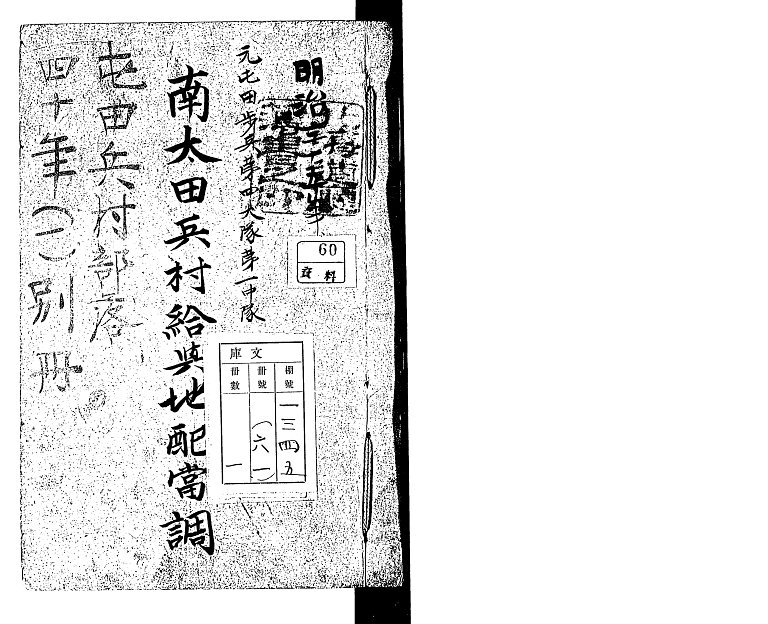 明治
元屯田歩兵第四大隊第一中隊
60
資料
南太田兵村給與地配當調
文庫
棚號
一三四五
冊號
(六一)
冊數
一
屯田兵村部落
四十年(二)別冊